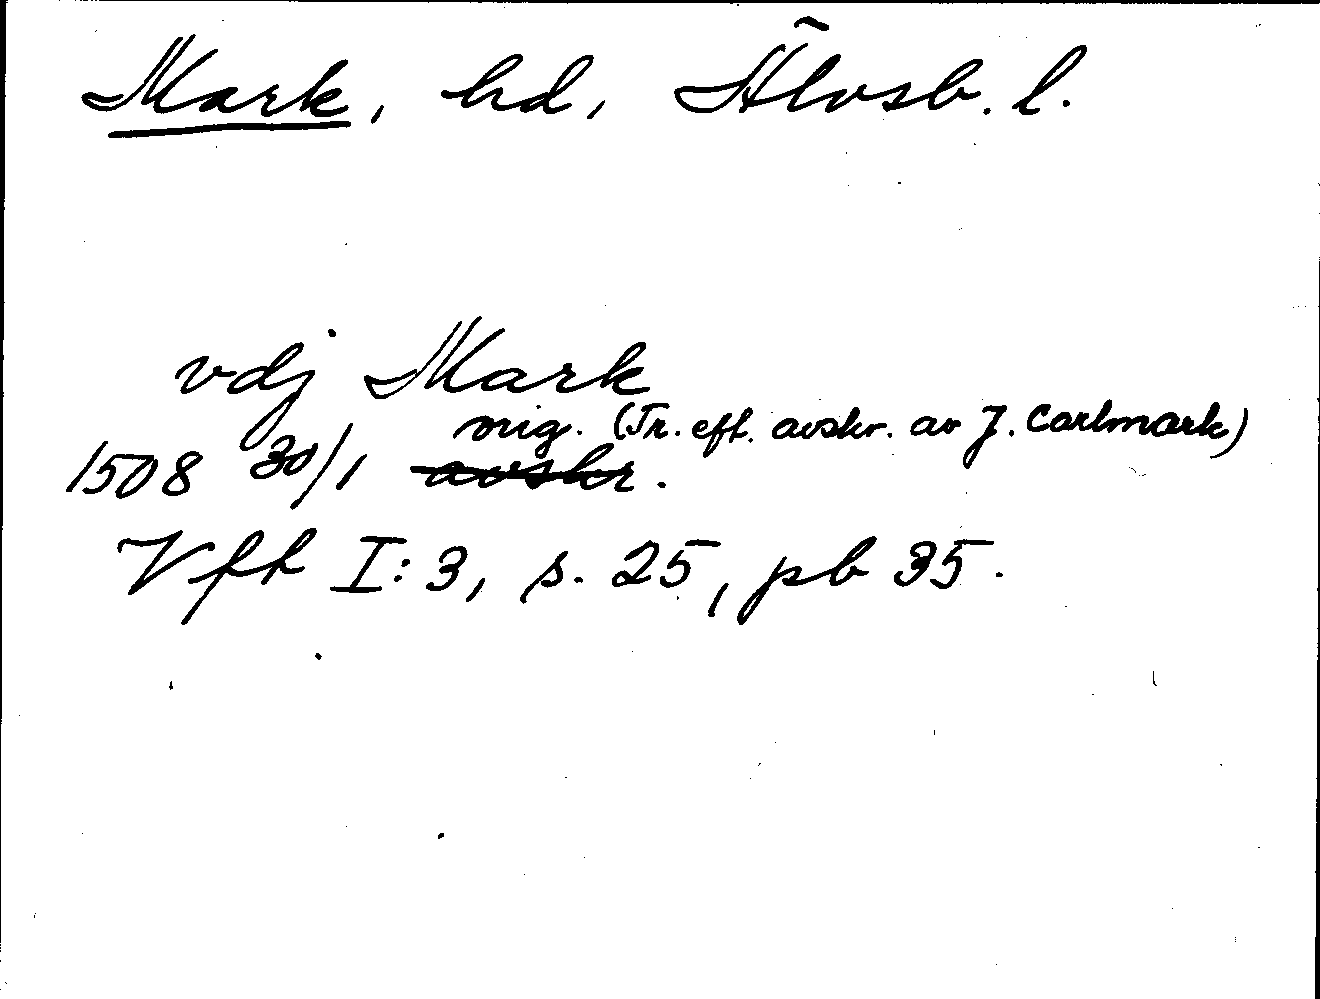 Mark, hd, Älvsb. l.
vdj Mark
orig. (Tr. eft. avskr. av J. Carlmark)
1508 30/1 avskr.
Vft I:3, s. 25, pb 35.